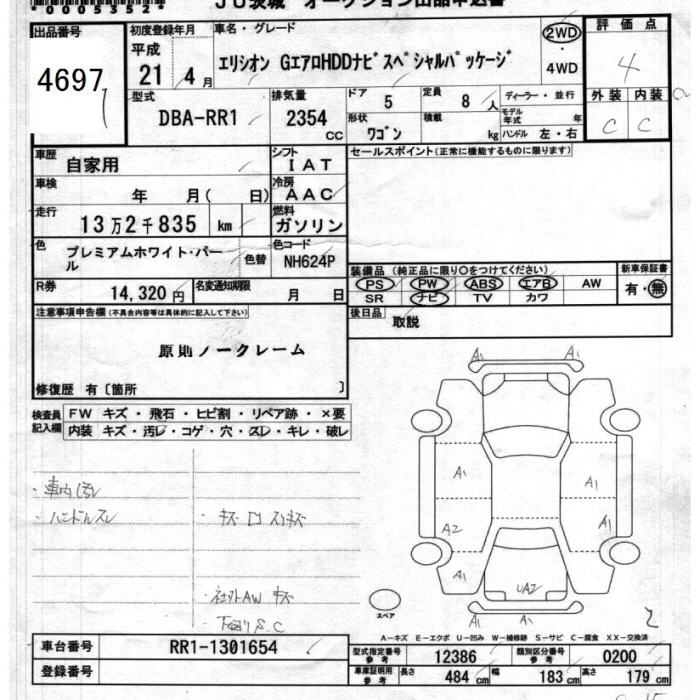 *00053520*
JU茨城 オークション出品申込書
出品番号 初度登録年月 車名・グレード 2WD 評価点
4697 平成 21年 4月 エリシオン GエアロHDDナビスペシャルパッケージ 4WD 4
型式 排気量 ドア 5 定員 8人 ディーラー・並行 外装 内装
DBA-RR1 2354 CC 形状 ワゴン 積載 kg モデル年式 年 C C
ハンドル 左・右
車歴 自家用 シフト IAT セールスポイント(正常に機能するものに限ります)
車検 年 月( 日) 冷房 AAC
走行 13万2千835 km 燃料 ガソリン
色 プレミアムホワイト・パール 色替 色コード NH624P
装備品 (純正品に限り○をつけてください) 新車保証書
PS PW ABS エアB AW 有・無
SR ナビ TV カワ
R券 14,320円 名変通知期限 月 日
後日品 取説
注意事項申告欄(不具合内容等は具体的に記入して下さい)
原則ノークレーム
修復歴 有〔箇所 〕
検査員記入欄 FW キズ・飛石・ヒビ割・リペア跡・×要
内装 キズ・汚レ・コゲ・穴・スレ・キレ・破レ
A1 A1
・車内汚レ
・ハンドルスレ
・キズ ロ スリキズ
・社外AW キズ
下回りS.C
A1 A1
A2 A1
A1 UA2
A1 A1
スペア
2
A-キズ E-エクボ U-凹み W-補修跡 S-サビ C-腐食 XX-交換済
車台番号 RR1-1301654
登録番号
型式指定番号 参考 12386 類別区分番号 参考 0200
車庫証明用 参考 長さ 484 cm 幅 183 cm 高さ 179 cm